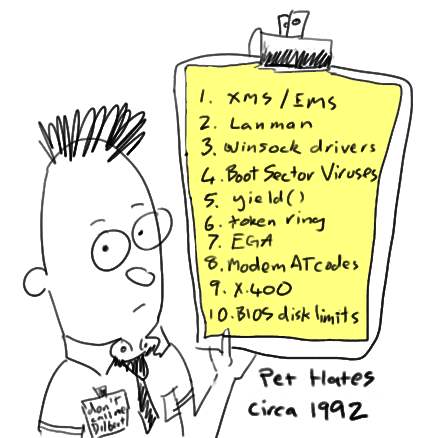 1. XMS / EMS
2. Lanman
3. Winsock drivers
4. Boot Sector Viruses
5. yield()
6. token ring
7. EGA
8. Modem AT codes
9. X.400
10. BIOS disk limits
Pet Hates
Circa 1992
don't
call me
Dilbert